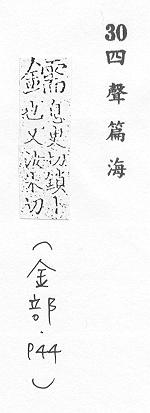 30四聲篇海
鑐息臾切鎖
也又汝朱切
(金部.P44)